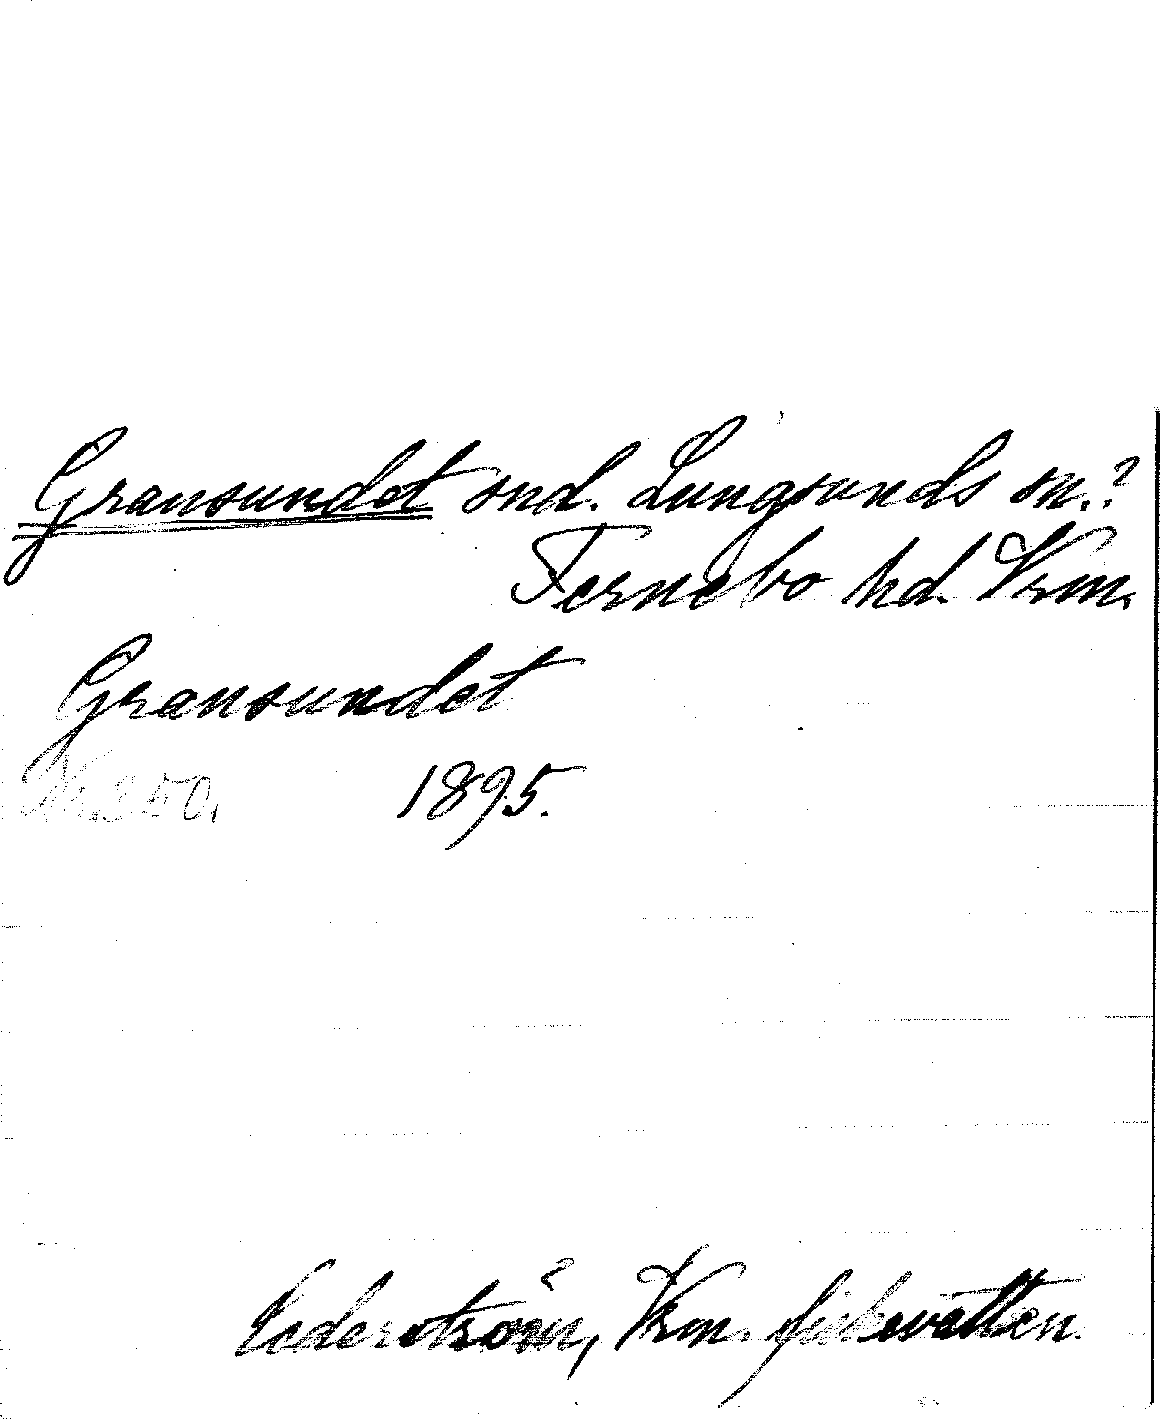 Gransundet snd. Lungsunds sn.?
Fernebo hd. Vrm.
Gransundet
Nr. 250. 1895.
Cederström, Vrm. fiskevatten.